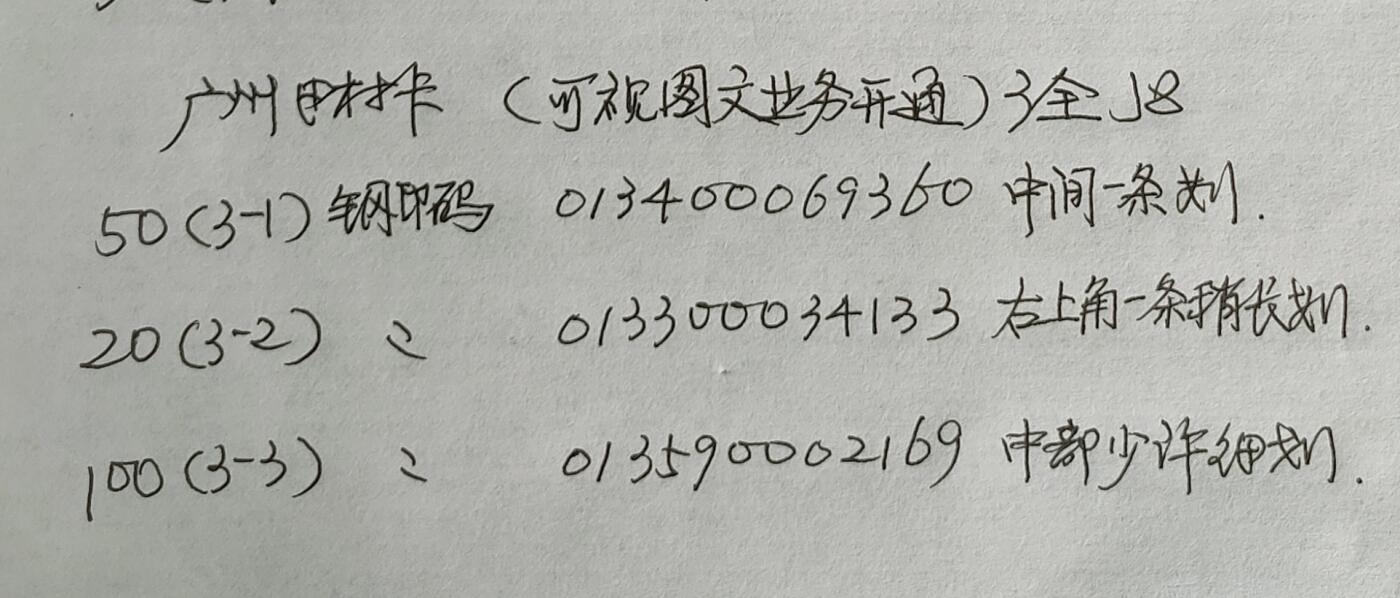 广州田村卡 （可视图文业务开通）3全J8
50（3-1）钢印码 013400069360 中间一条划.
20（3-2） 〻 013300034133 右上角一条稍长划.
100（3-3） 〻 013590002169 中部少许细划.